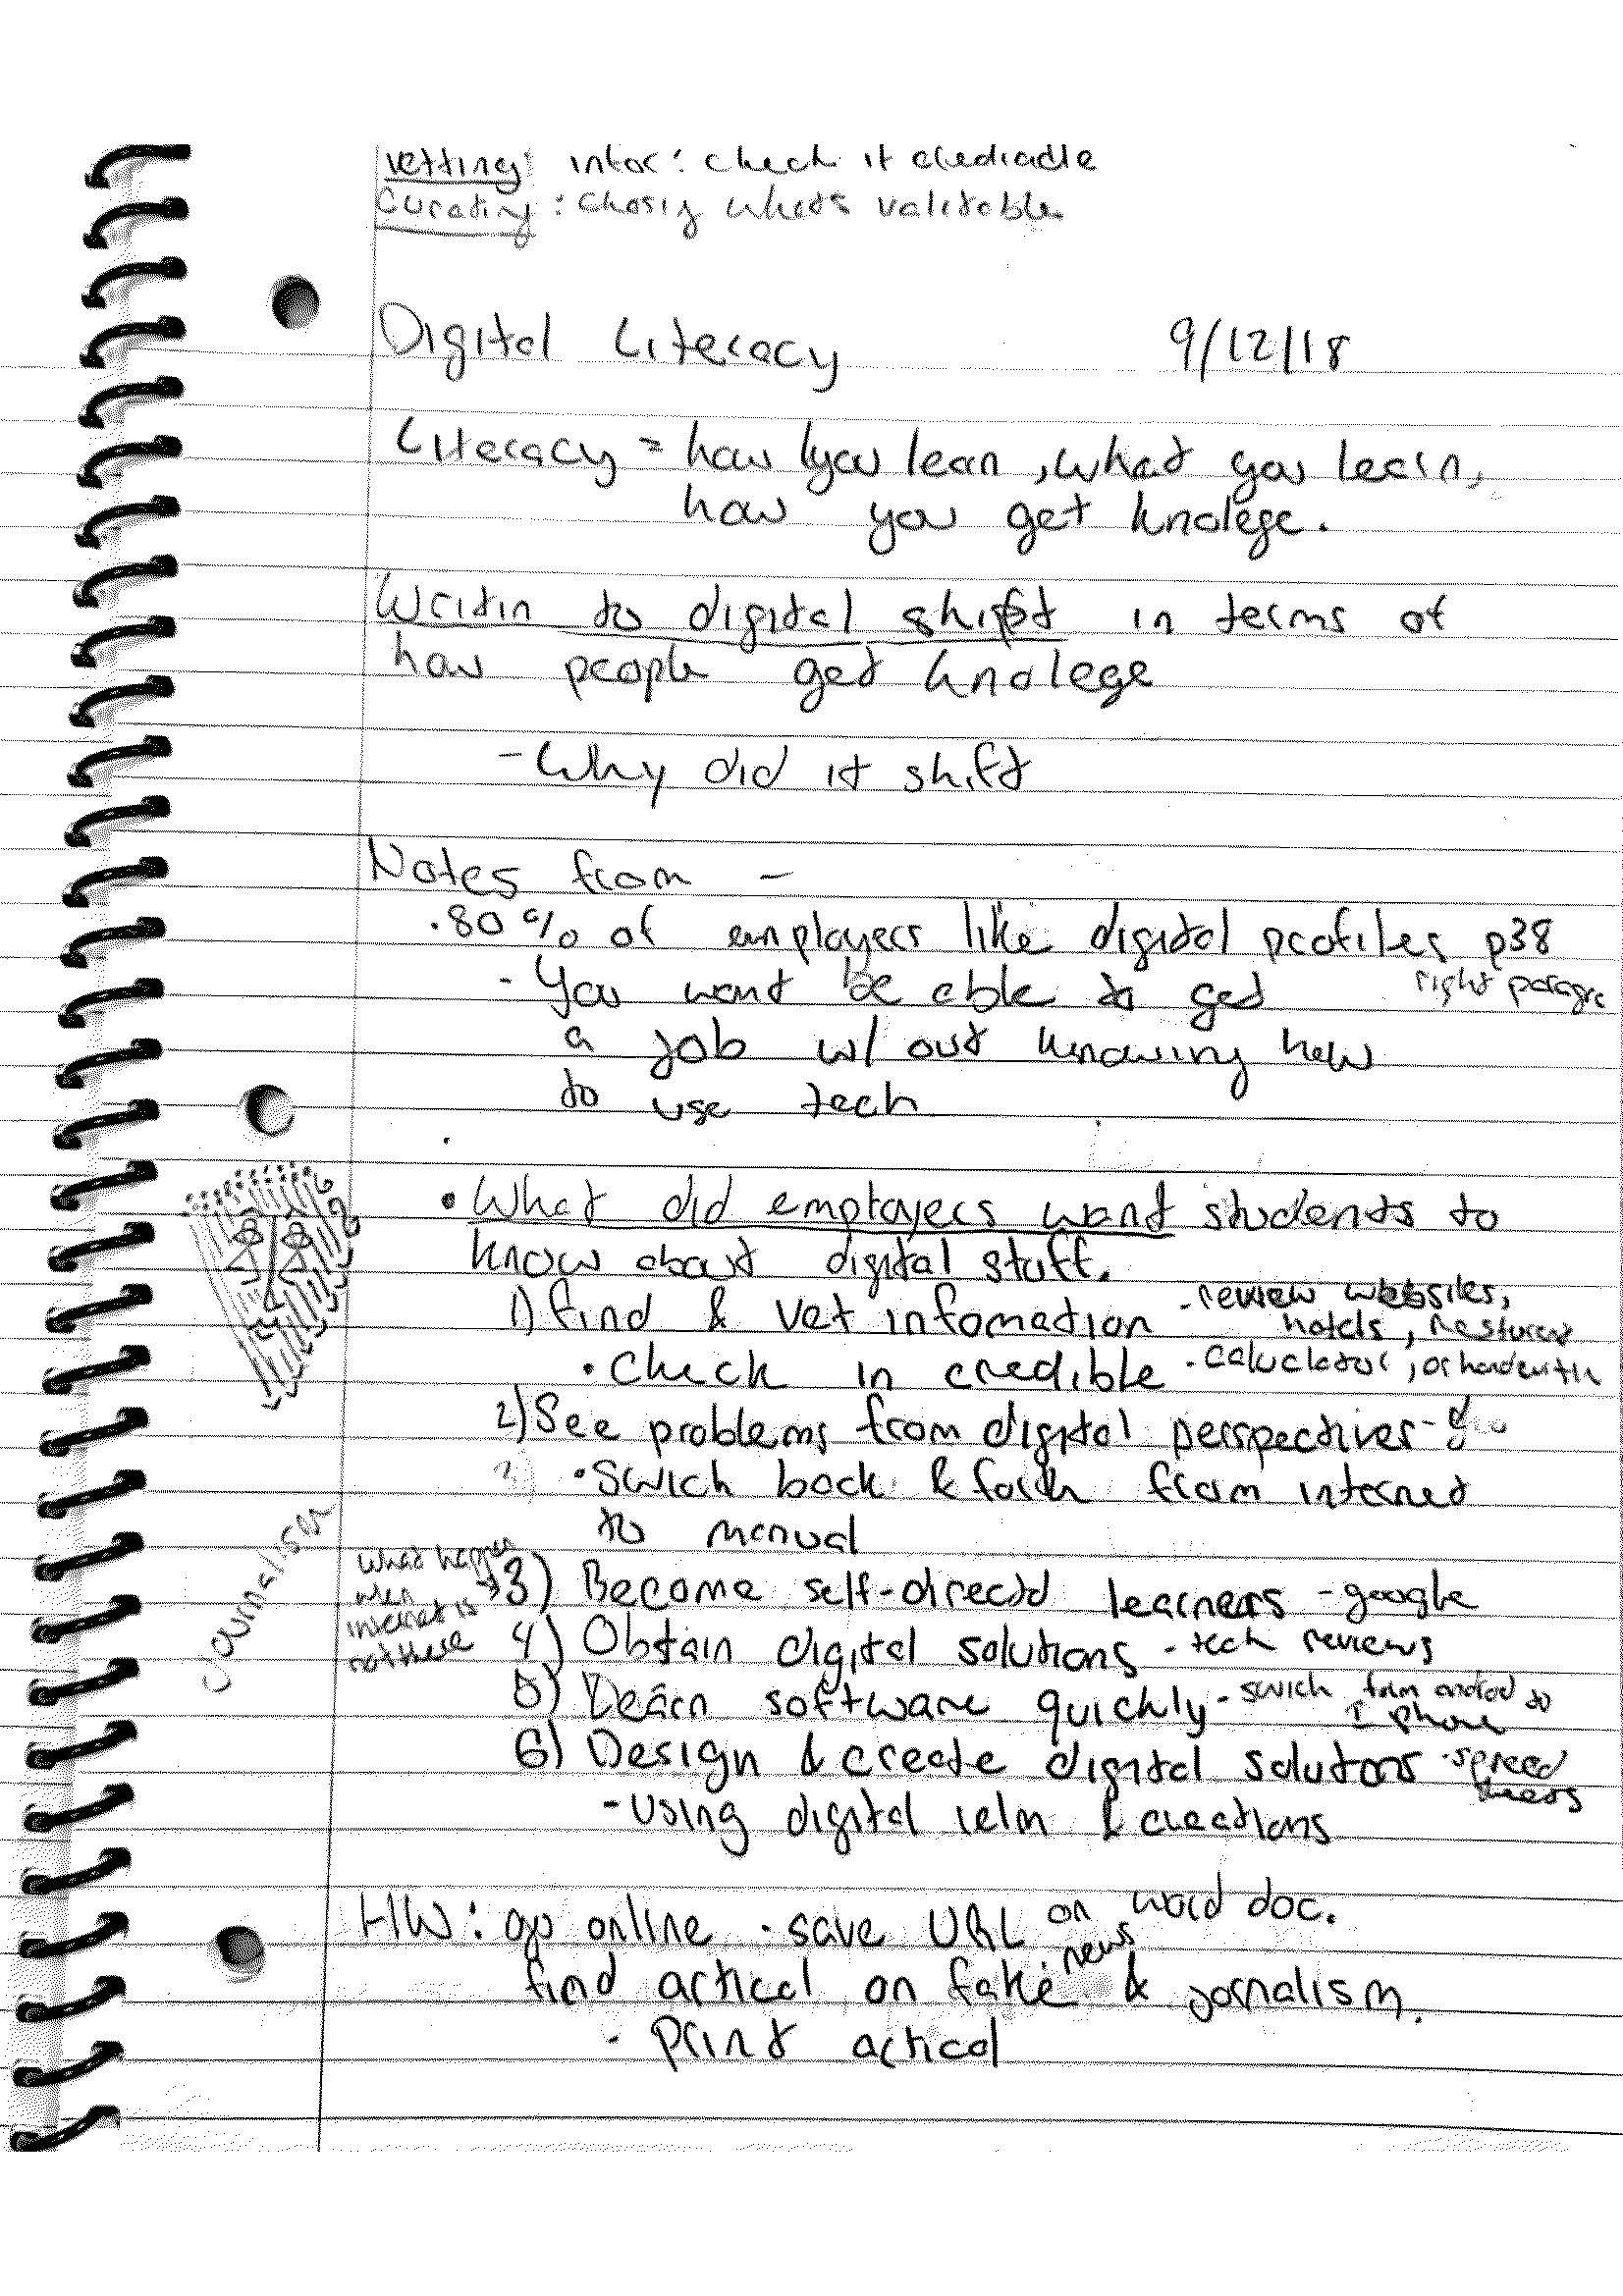 vetting: infor: check it crediable
Curating: Chosig whets valitable
Digital Literacy 9/12/18
Literacy = how you lean, what you learn,
how you get knolege.
Writin to digital shift in terms of
how people get knolege
- Why did it shift
Notes from -
. 80% of employers like digital profiles p38
- You wont be able to get right paragre
a job w/ out knowing how
to use tech
• What did employers want students to
know about digital stuff.
1) find & vet infomation - review websites,
hotels, resturent
• Check in credible - calculator, or handwritin
2) See problems from digital perspectives -
• Swich back & forth from internet
to manual
What happen
when
internet is
not there
Journalism
→ 3) Become self-directd learners - google
4) Obtain digital solutions - tech reviews
5) Learn software quickly - swich from android to
I phone
6) Design & create digital solutons - spread
sheets
- using digital & creations
HW: go online · save URL on word doc.
find artical on fake news & jornalism.
· print artical